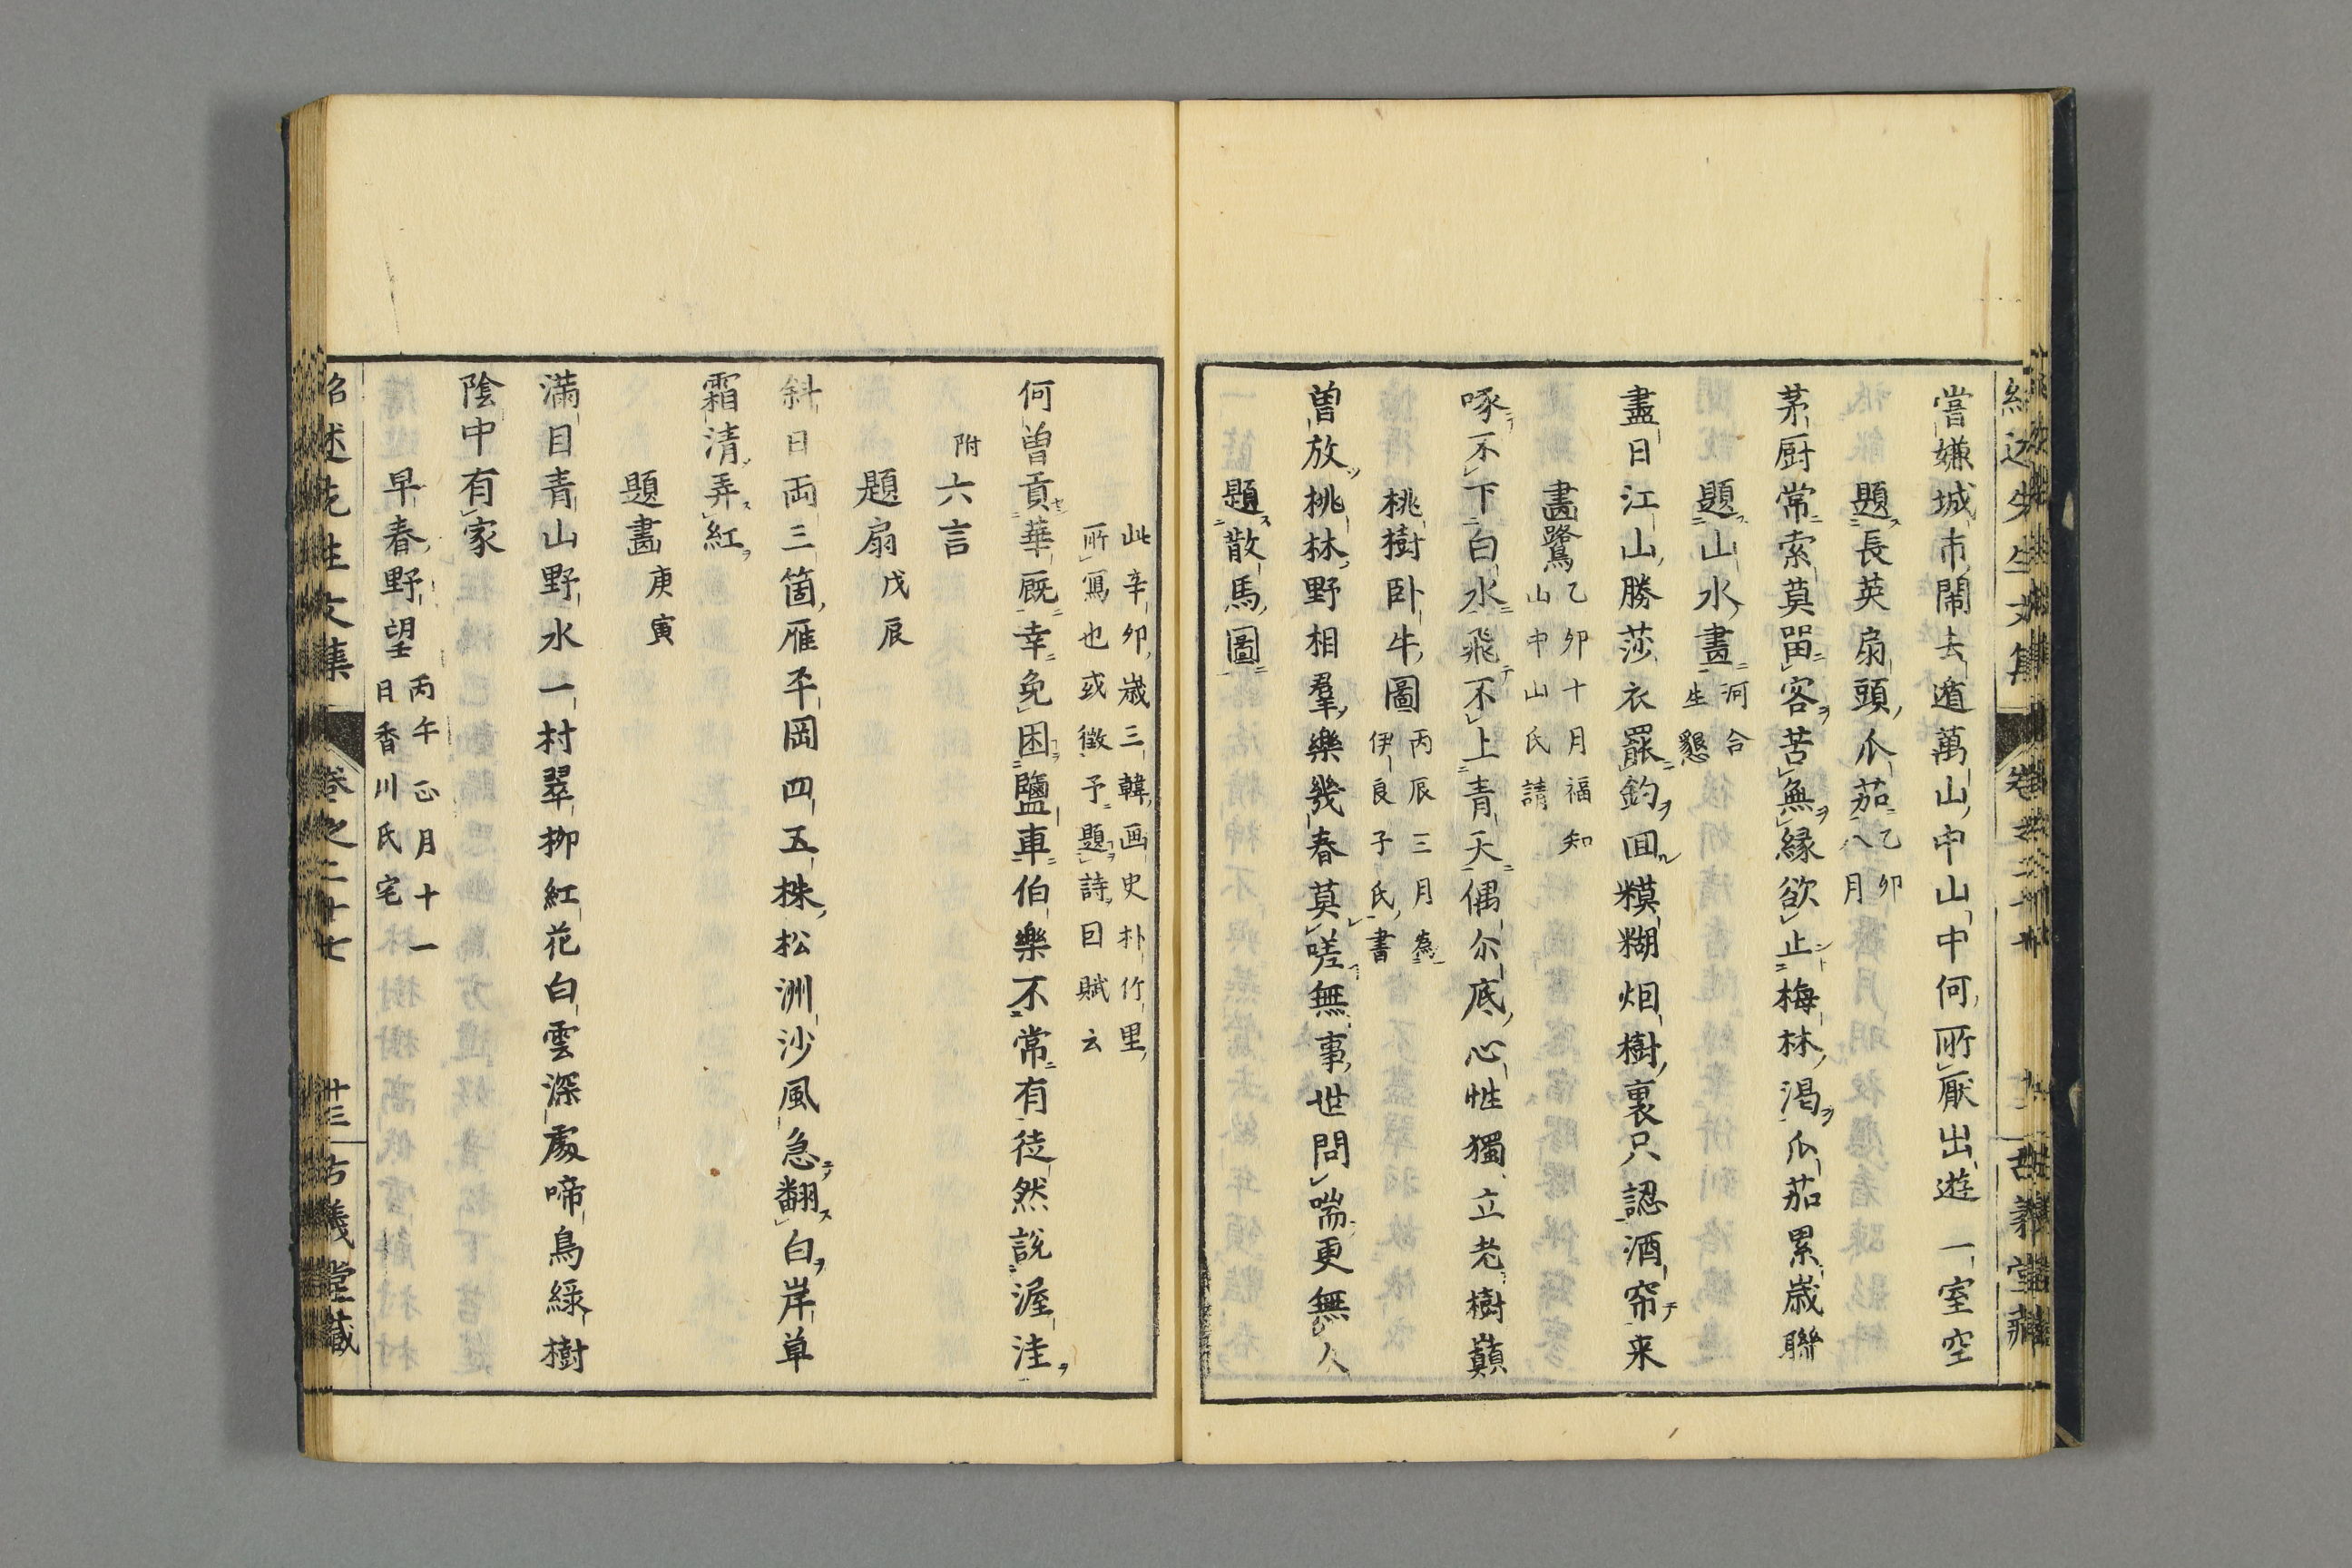 嘗嫌城市閙去遁萬山中山中何所厭出遊一室空
題長英扇頭瓜茄乙卯
八月
茅厨常索莫畱客苦無縁欲止梅林渇瓜茄累歳聯
題山水畫河合
生懇
盡日江山勝莎衣罷釣回糢糊烟樹裏只認酒帘来
畵鷺乙卯十月福知
山中山氏請
啄不下白水飛不上青天偶尓底心性獨立老樹巔
桃樹卧牛圖丙辰三月為
伊良子氏書
曽放桃林野相羣樂幾春莫嗟無事世問喘更無人
題散馬圖
此辛卯歳三韓画史朴竹里
所寫也或徴予題詩因賦云
何曽貢華厩幸免困鹽車伯樂不常有徒然説渥洼
附六言
題扇戊辰
斜日両三箇雁平岡四五株松洲沙風急翻白岸草
霜清弄紅
題畵庚寅
滿目青山野水一村翠柳紅花白雲深處啼鳥緑樹
陰中有家
早春野望丙午正月十一
日香川氏宅
紹述先生文集 卷之二十七 廿三 古義堂藏